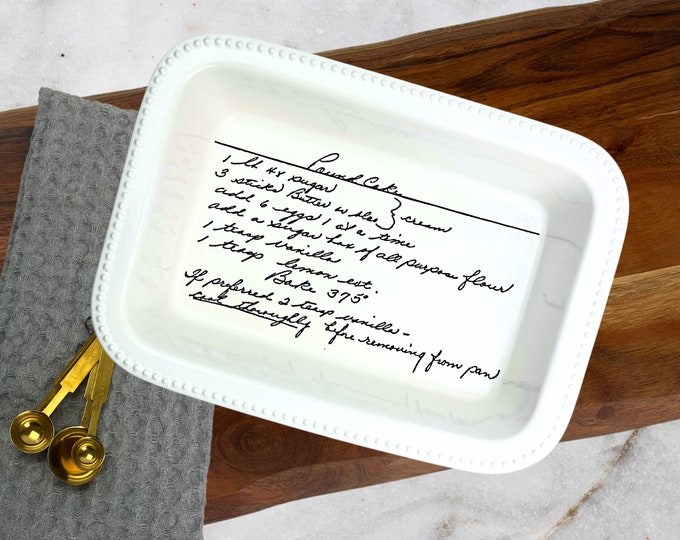 Pound Cake
1 lb 4x sugar
3 sticks Butter } cream
add 6 eggs 1 at a time
add a sugar box of all purpose flour
1 teasp vanilla
1 teasp lemon ext.
Bake 375°
If preferred 2 teasp vanilla -
cool thoroughly before removing from pan